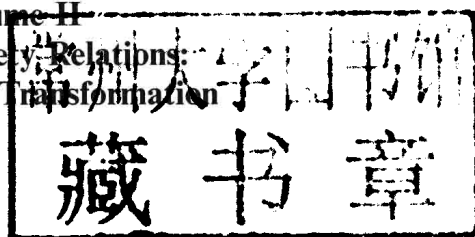 ume II
ety Relations:
Transformation
常州大学图书馆
藏书章